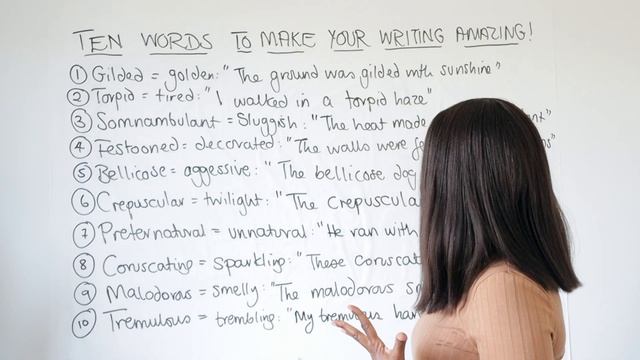 TEN WORDS TO MAKE YOUR WRITING AMAZING!
① Gilded = golden: "The ground was gilded with sunshine"
② Torpid = tired: "I walked in a torpid haze"
③ Somnambulant = Sluggish: "The heat made
④ Festooned = decorated: "The walls were
⑤ Bellicose = aggressive: "The bellicose dog
⑥ Crepuscular = twilight: "The Crepuscula
⑦ Preternatural = unnatural: "He ran with
⑧ Coruscating = sparkling: "These coruscat
⑨ Malodorous = smelly: "The malodorous
⑩ Tremulous = trembling: "My tremulous